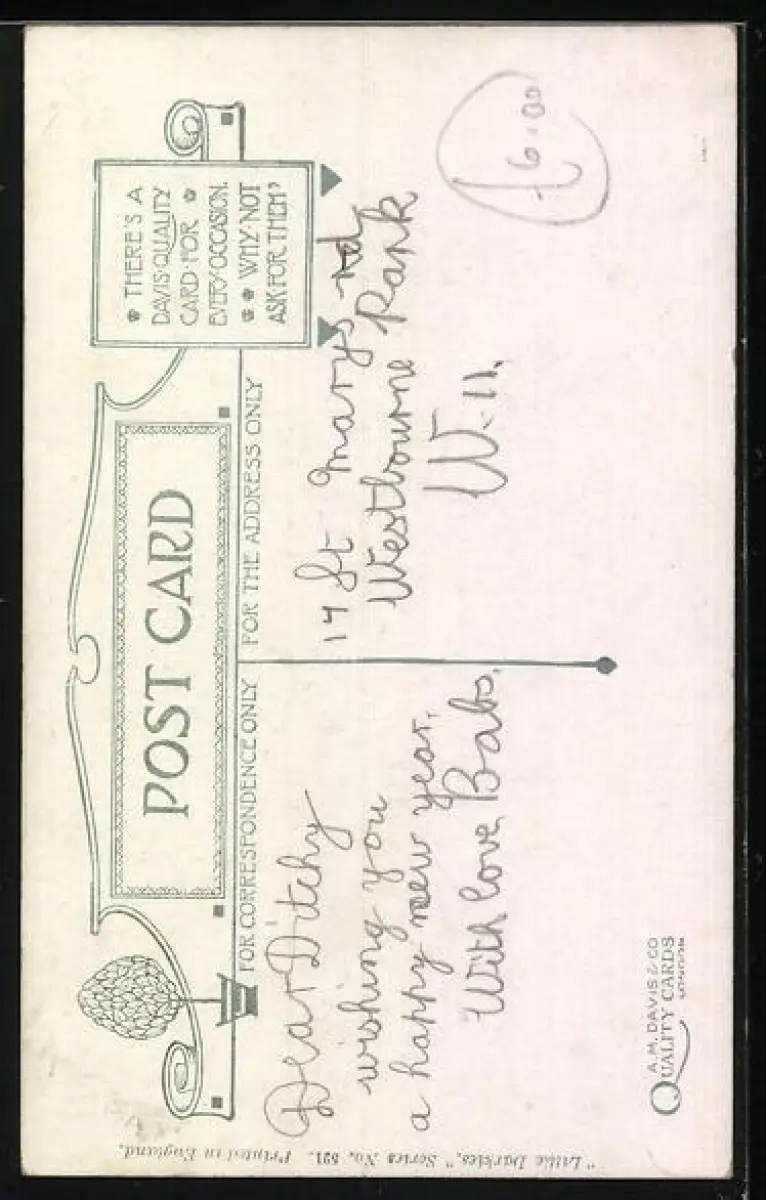 THERE'S A
DAVIS·QUALITY
CARD·FOR
EVERY·OCCASION.
WHY·NOT
ASK FOR THEM?
POST CARD
FOR CORRESPONDENCE ONLY
FOR THE ADDRESS ONLY
Dear Ditchy
wishing you
a happy new year.
With love Babs.
14 St Marys rd
Westbourne Park
W. 11.
£6.00
A. M. DAVIS & CO
QUALITY CARDS
LONDON
"Little Darkies," Series No. 521. Printed in England.